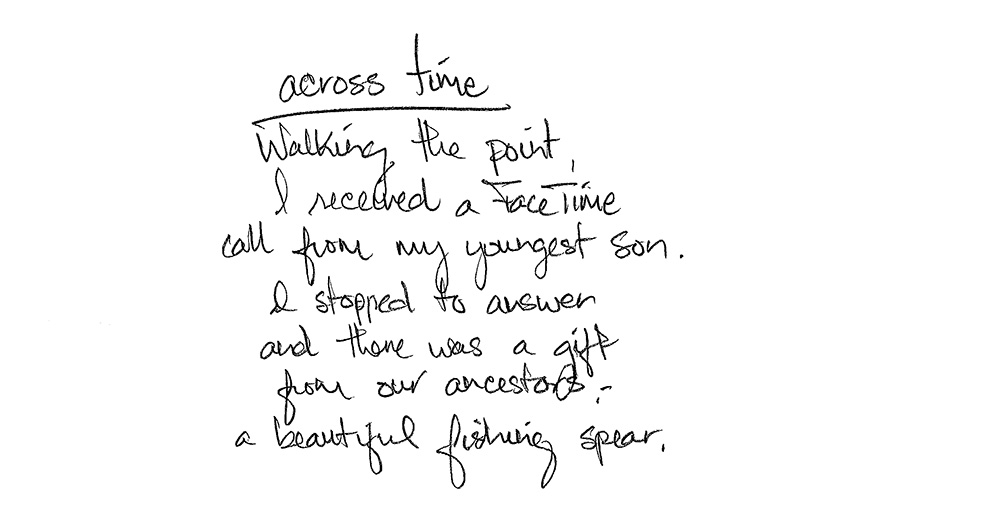 across time
Walking the point,
I received a FaceTime
call from my youngest son.
I stopped to answer
and there was a gift
from our ancestors;-
a beautiful fishing spear.